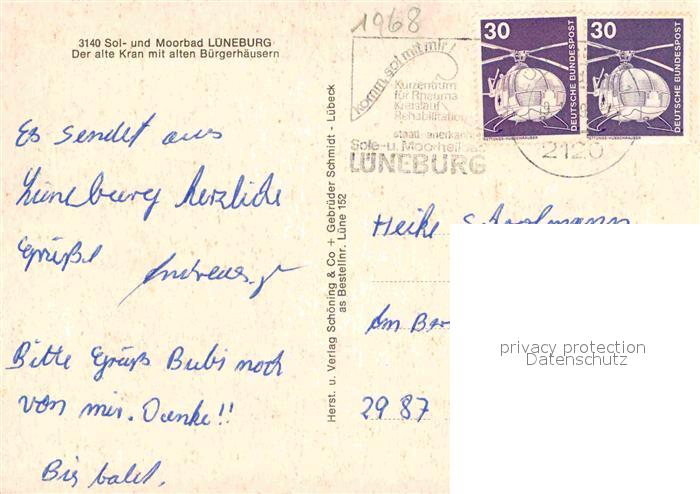 3140 Sol- und Moorbad LÜNEBURG
Der alte Kran mit alten Bürgerhäusern
1968
komm, sol mit mir!
Kurzentrum
für Rheuma
Kreislauf
Rehabilitation
staatl. anerkannt
Sole- u. Moorheilbad
LÜNEBURG
2120
30
DEUTSCHE BUNDESPOST
RETTUNGS-HUBSCHRAUBER
30
DEUTSCHE BUNDESPOST
RETTUNGS-HUBSCHRAUBER
Es sendet aus
Lüneburg herzliche
Grüße Andreas
Bitte Grüß Bubi noch
von mir. Danke!!
Bis bald.
Herst. u. Verlag Schöning & Co + Gebrüder Schmidt - Lübeck
as Bestellnr. Lüne 152
Heike
Am
2987
privacy protection
Datenschutz